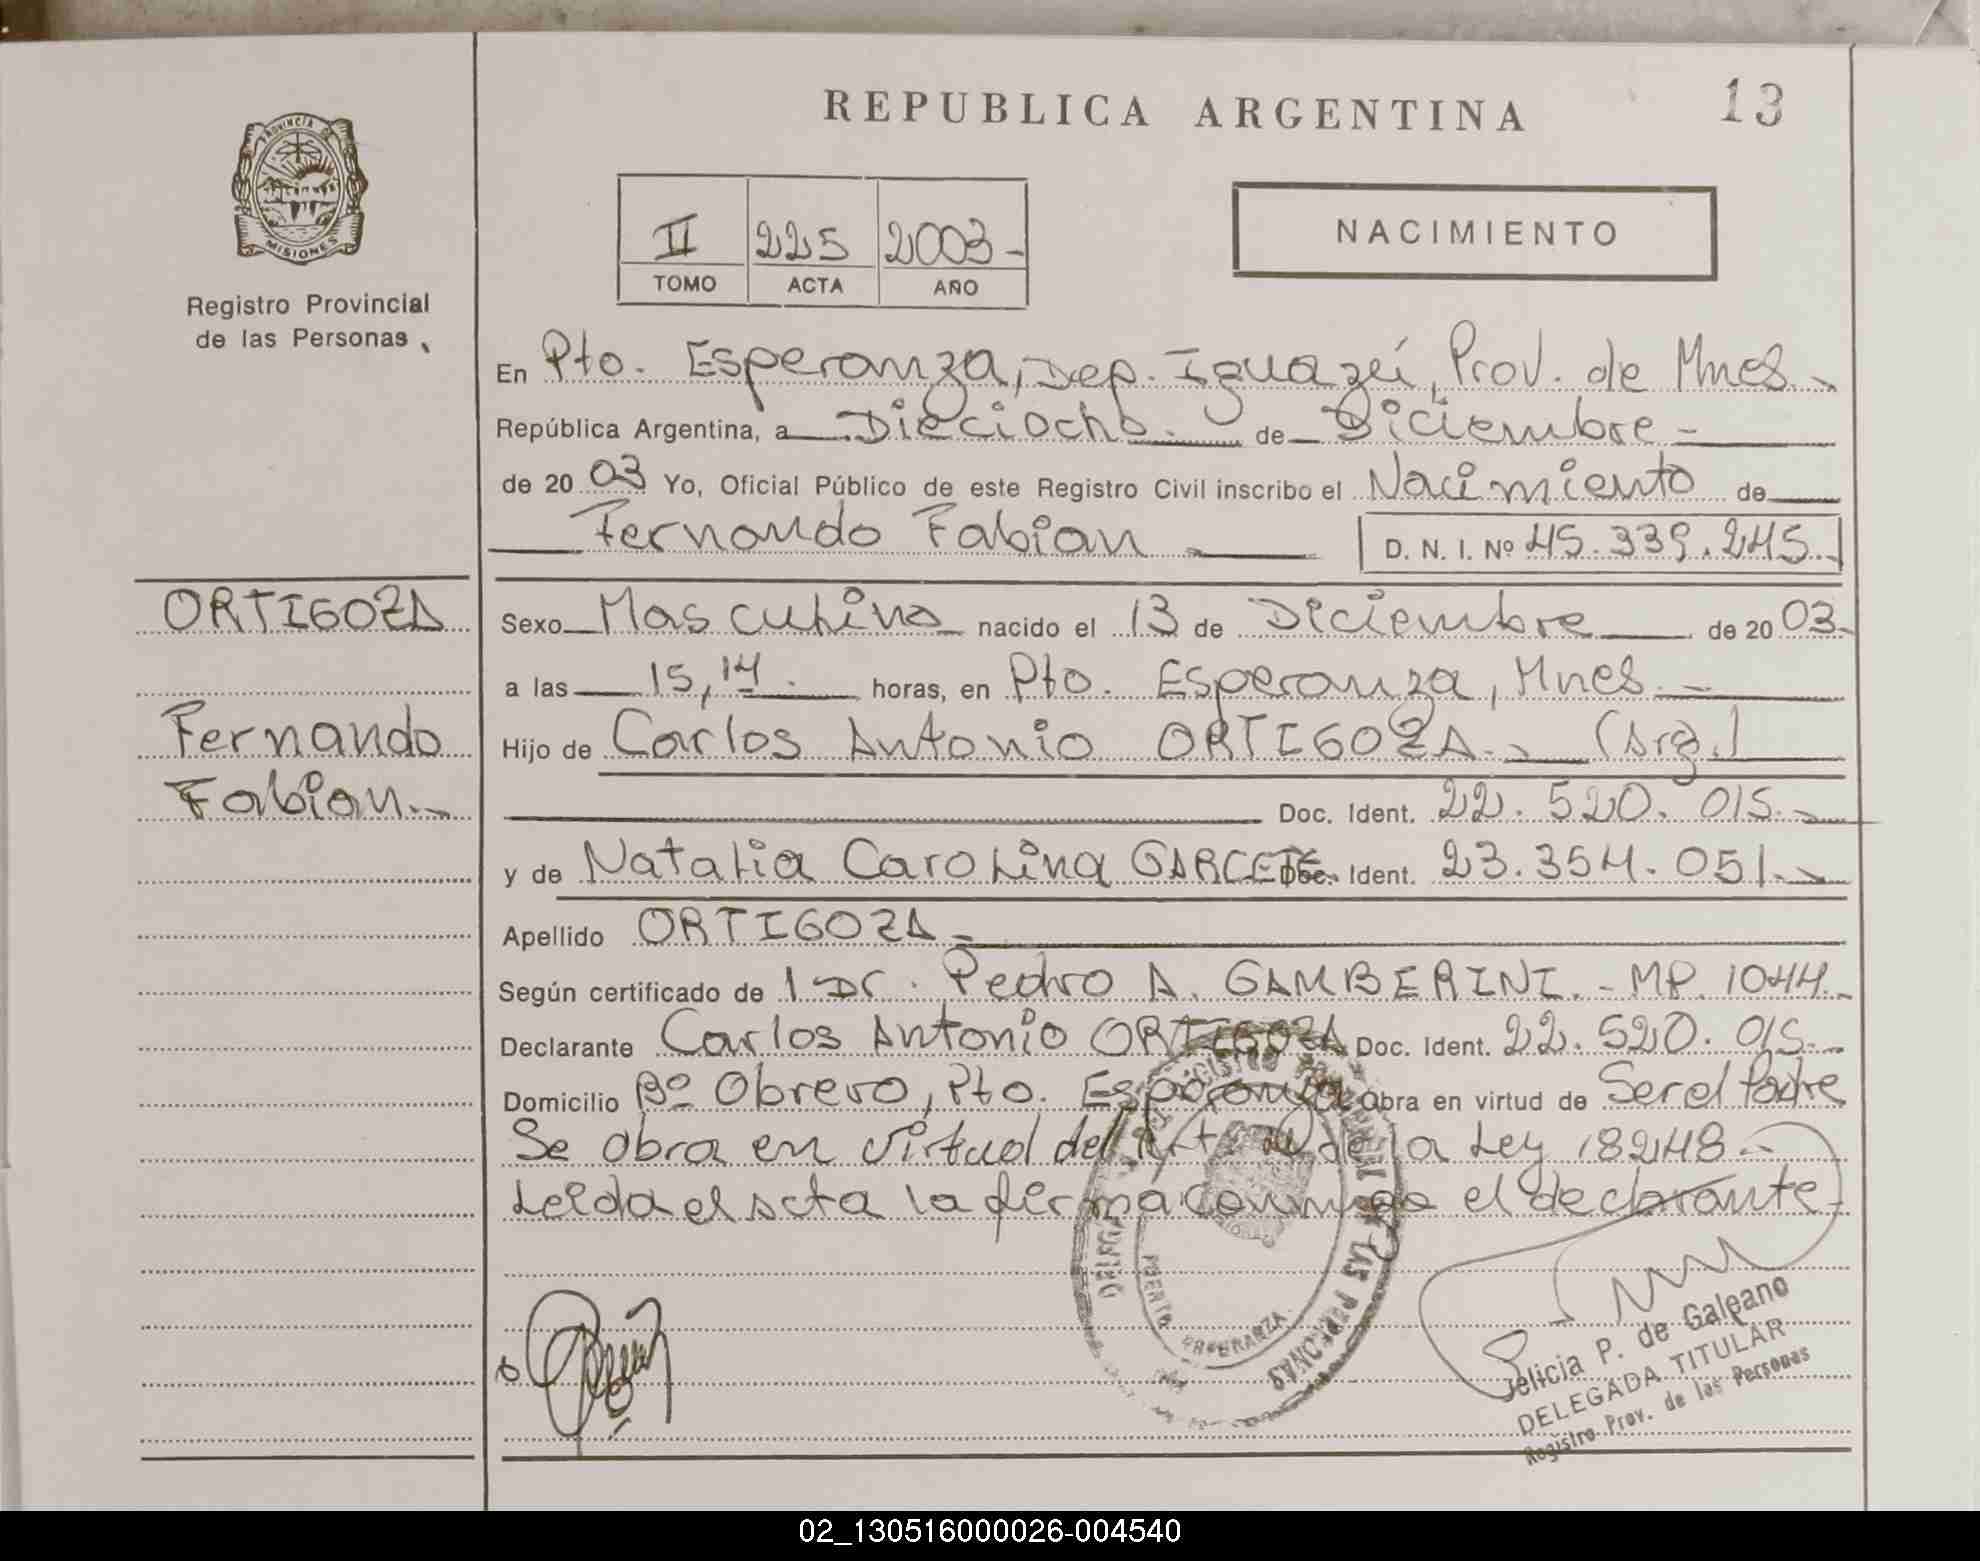 REPUBLICA ARGENTINA
13
PROVINCIA DE
MISIONES
Registro Provincial
de las Personas
II 225 2003-
TOMO ACTA AÑO
NACIMIENTO
En Pto. Esperanza, Dep. Iguazú, Prov. de Mnes.-
República Argentina, a Dieciocho.- de Diciembre -
de 20 03 Yo, Oficial Público de este Registro Civil inscribo el Nacimiento de
Fernando Fabian D. N. I. Nº 45.339.245.
ORTIGOZA
Fernando
Fabian.-
Sexo Masculino nacido el 13 de Diciembre de 20 03-
a las 15,14. horas, en Pto. Esperanza, Mnes.-
Hijo de Carlos Antonio ORTIGOZA.- (Arg.)
Doc. Ident. 22.520.015.-
y de Natalia Carolina GARCETE Doc. Ident. 23.354.051.-
Apellido ORTIGOZA-
Según certificado de 1 Dr. Pedro A. GAMBERINI.- MP. 1044.-
Declarante Carlos Antonio ORTIGOZA Doc. Ident. 22.520.015.-
Domicilio Bº Obrero, Pto. Esperanza Obra en virtud de Ser el Padre
Se obra en virtud del Art. de la Ley 18248.-
Leida el acta la firma conmigo el declarante-
REGISTRO PROVINCIAL DE LAS PERSONAS
PUERTO ESPERANZA
Felicia P. de Galeano
DELEGADA TITULAR
Registro Prov. de las Personas
02_130516000026-004540